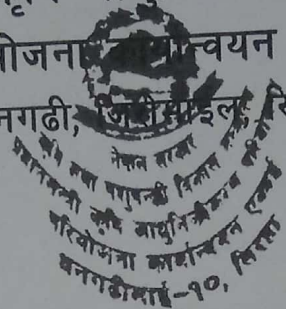 योजना कार्यान्वयन
नगढी,
नेपाल सरकार
कृषि तथा पशुपन्छी विकास
प्रधानमन्त्री कृषि आधुनिकीकरण
परियोजना कार्यान्वयन एकाई
धनगढीमाई-१०, सिराहा